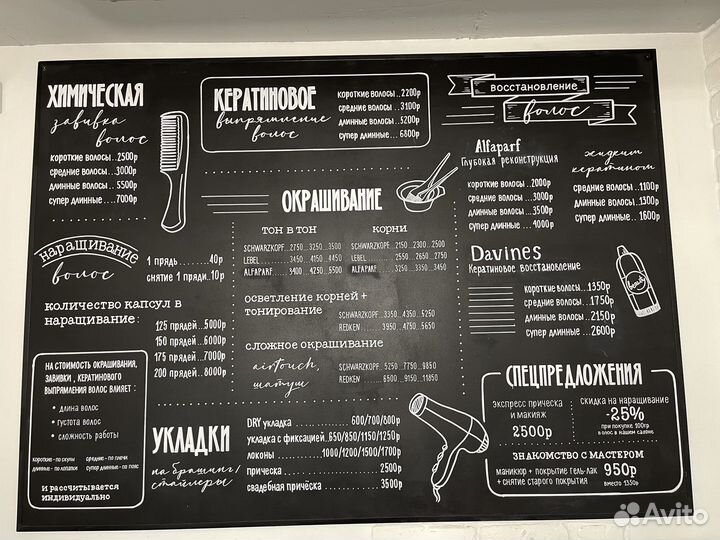 ХИМИЧЕСКАЯ
завивка
волос
короткие волосы..2500р
средние волосы...3000р
длинные волосы..5500р
супер длинные....7000р
КЕРАТИНОВОЕ
выпрямление
волос
короткие волосы..2200р
средние волосы...3100р
длинные волосы..5200р
супер длинные....6800р
восстановление
волос
Alfaparf
Глубокая реконструкция
короткие волосы..2000р
средние волосы....3000р
длинные волосы...3500р
супер длинные.....4000р
жидким
кератином
средние волосы..1100р
длинные волосы..1300р
супер длинные....1600р
Davines
Кератиновое восстановление
короткие волосы...1350р
средние волосы....1750р
длинные волосы....2150р
супер длинные......2600р
ОКРАШИВАНИЕ
ТОН В ТОН
SCHWARZKOPF...2750...3250...3500
LEBEL..............3450...4150...4450
ALFAPARF........3400...4250...5500
КОРНИ
SCHWARZKOPF...2150...2300...2500
LEBEL................2550...2650...2750
ALFAPARF..........3250...3350...3450
осветление корней +
тонирование
SCHWARZKOPF...3350...4350...5250
REDKEN..........3950...4750...5650
сложное окрашивание
airtouch,
шатуш
SCHWARZKOPF...5250...7750...9850
REDKEN.........6500...9150...11850
наращивание
волос
1 прядь..........40р
снятие 1 пряди..10р
количество капсул в
наращивание:
125 прядей..5000р
150 прядей..6000р
175 прядей..7000р
200 прядей..8000р
НА СТОИМОСТЬ ОКРАШИВАНИЯ,
ЗАВИВКИ , КЕРАТИНОВОГО
ВЫПРЯМЛЕНИЯ ВОЛОС ВЛИЯЕТ :
• длина волос
• густота волос
• сложность работы
короткие - по скулы средние - по плечи
длинные - по лопатки супер длинные - по пояс
и рассчитывается
индивидуально
УКЛАДКИ
на брашинг/
стайлеры
DRY укладка............600/700/800р
укладка с фиксацией..650/850/1150/1250р
локоны............1000/1200/1500/1700р
прическа.........................2500р
свадебная причёска...............3500р
СПЕЦПРЕДЛОЖЕНИЯ
экспресс прическа
и макияж
2500р
скидка на наращивание
-25%
при покупке 100гр
волос в нашем салоне
ЗНАКОМСТВО С МАСТЕРОМ
маникюр + покрытие гель-лак
+ снятие старого покрытия
950р
вместо 1350р
Avito